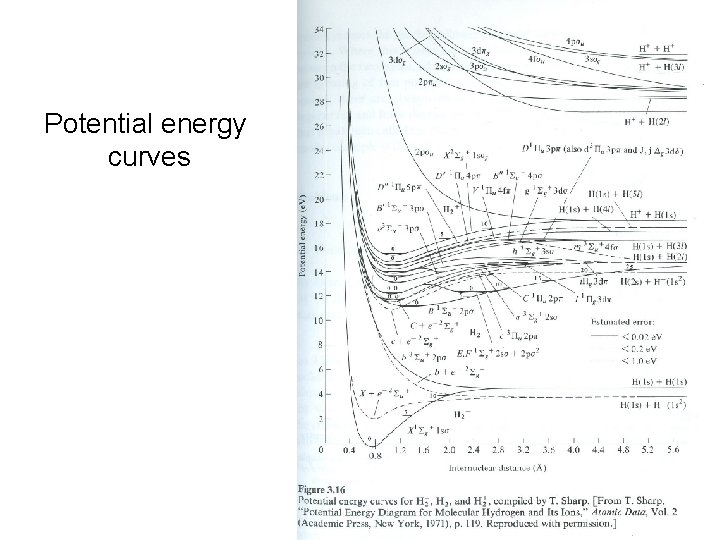 Potential energy
curves
34
32
30
28
26
24
22
20
18
16
14
12
10
8
6
4
2
0
Potential energy (eV)
3dσg
2sσg
3dπg
3pσu
2pπu
4fσu
4pσu
3sσg
H⁺ + H⁺
H⁺ + H(3l)
H⁺ + H(2l)
2pσu
X²Σg⁺ 1sσg
D¹Πu 3pπ (also d³Πu 3pπ and J, j Δg 3dδ)
D′¹Πu 4pπ
B″¹Σu⁺ 4pσ
D″¹Πu 5pπ
V¹Πu 4fπ
g³Σg⁺ 3dσ
H(1s) + H(5l)
B′¹Σu⁺ 3pσ
H₂⁺
H(1s) + H(4l)
H⁺ + H(1s)
e³Σu⁺ 3pσ
h³Σg⁺ 3sσ
m³Σu⁺ 4fσ
H(1s) + H(3l)
H(1s) + H(2l)
H(2s) + H⁻(1s²)
C¹Πu 2pπ
B¹Σu⁺ 2pσ
a³Σg⁺ 2sσ
C + e⁻ ²Σg⁺
H₂
c³Πu 2pπ
c + e⁻ ²Σg⁺
b³Σu⁺ 2pσ
E,F¹Σg⁺ 2sσ + 2pσ²
b + e⁻ ²Σg⁺
X + e⁻ ²Σu⁺
X¹Σg⁺ 1sσ
H₂⁻
H(1s) + H(1s)
H(1s) + H⁻(1s²)
Estimated error:
< 0.02 eV
< 0.2 eV
< 1.0 eV
0.4 0.8 1.2 1.6 2.0 2.4 2.8 3.2 3.6 4.0 4.4 4.8 5.2 5.6
Internuclear distance (Å)
Figure 3.16
Potential energy curves for H₂⁻, H₂, and H₂⁺, compiled by T. Sharp. [From T. Sharp,
"Potential Energy Diagram for Molecular Hydrogen and Its Ions," Atomic Data, Vol. 2
(Academic Press, New York, 1971), p. 119. Reproduced with permission.]